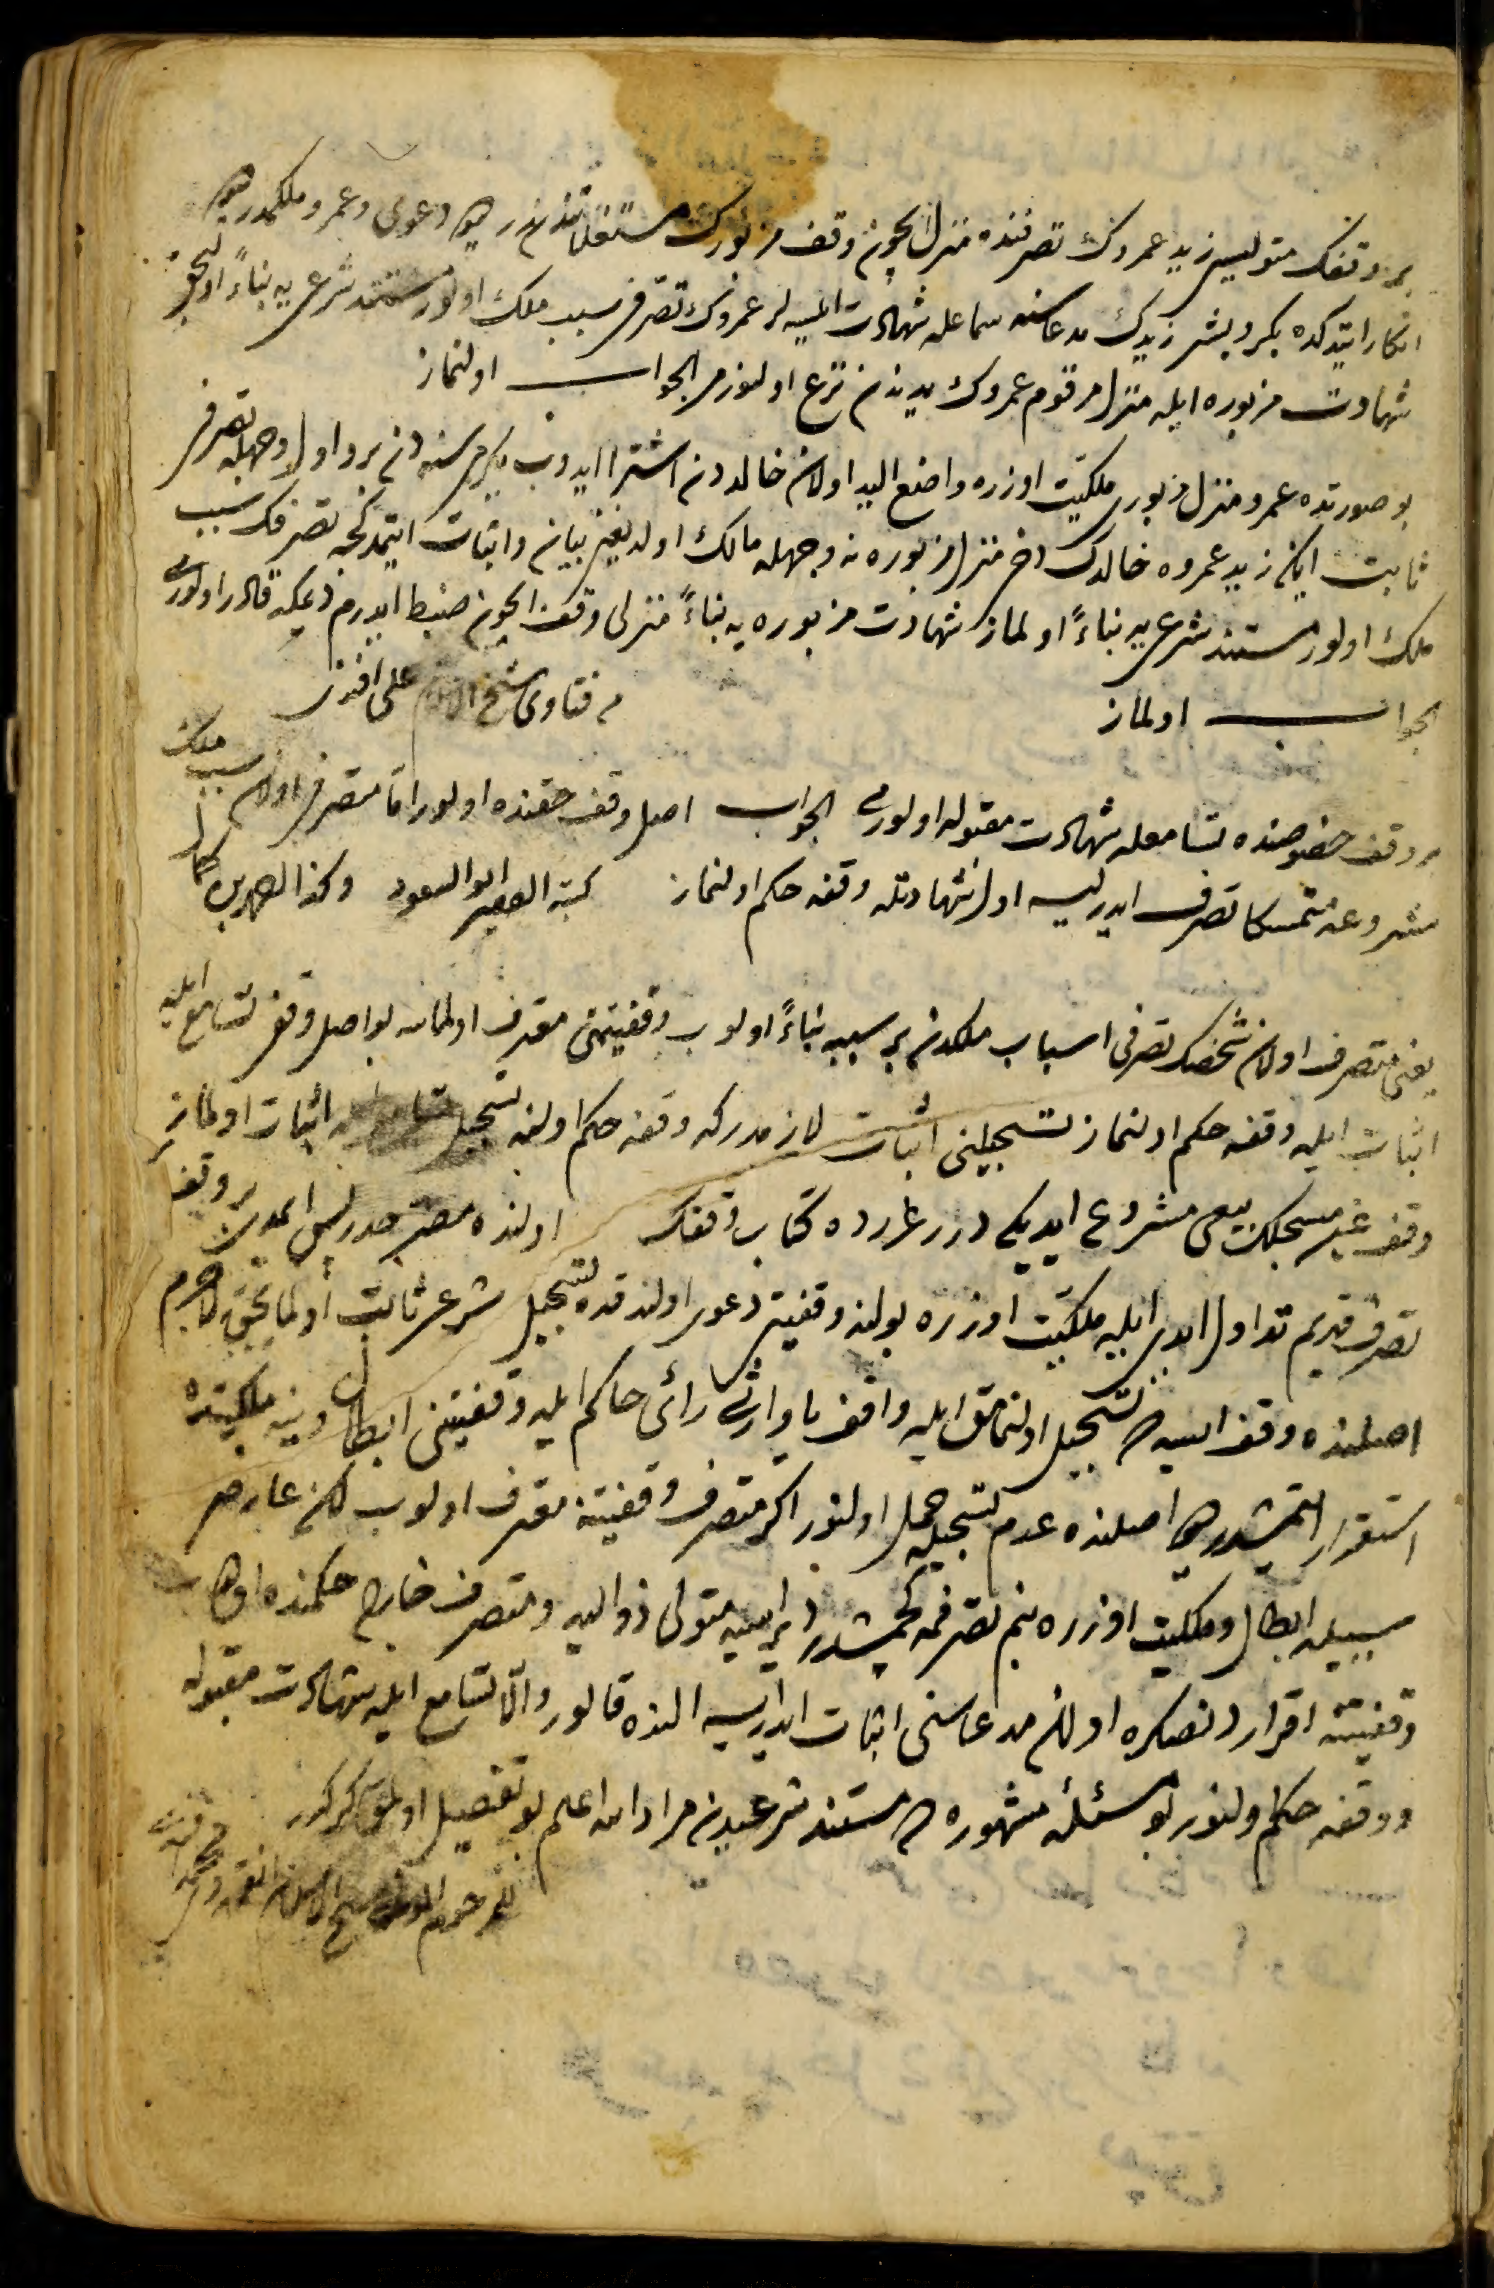 بر وقفك متوليسى زيد عمروك تصرفنده منزل ايچون وقف مزبورك مستغلاتندندر ديو دعوى وعمرو ملكمدر ديو
انكار ايتدكده بكر وبشر زيدك مدعاسنه سماعله شهادت ايلسه لر عمروك تصرفى سبب ملك اولور مستند شرعى يه بناءً اوليجق
شهادت مزبوره ايله منزل مرقوم عمروك يدندن نزع اولنورمى الجواب اولنماز
بو صورتده عمرو منزل مزبورى ملكيت اوزره واضع اليد اولان خالددن اشترا ايدوب يكرمى سنه دن برو اول وجهله تصرفى
ثابت ايكن زيد عمروه خالدك دخى منزل مزبوره نه وجهله مالك اولديغنى بيان واثبات ايتمدكجه تصرفك سبب
ملك اولور مستند شرعى يه بناءً اولماز شهادت مزبوره يه بناءً منزلى وقف ايچون ضبط ايدرم ديمكه قادر اولورمى
الجواب اولماز من فتاوى شيخ الاسلام على افندى
بر وقف خصوصنده تسامعله شهادت مقبوله اولورمى الجواب اصل وقف حقنده اولور اما متصرف اولان سبب ملك
مشروعه متمسكا تصرف ايدرسه اول شهادتله وقفه حكم اولنماز كتبه الفقير ابو السعود
يعنى متصرف اولان شخصك تصرفى اسباب ملكدن بر سببه بناءً اولوب وقفيتنى معترف اولمسه بو اصل وقفى تسامع ايله
اثبات ايله وقفه حكم اولنماز تسجيلنى اثبات لازمدركه وقفه حكم اولنه تسجيل اثبات اولماز
وقف غير مسجلك بيعى مشروع ايديكى درر غررده كتاب وقفك اولنده مصرحدر بر وقفه
تصرف قديم تداول ايدى ايله ملكيت اوزره بولنه وقفيتى دعوى اولندقده تسجيل شرعى ثابت اولمايجق لاجرم
اصلنده وقف ايسه ده تسجيل اولنمامق ايله واقف يا وارثى رأى حاكم ايله وقفيتنى ابطال وينه ملكيتده
استقرار ايتمشدر ديو اصلنده عدم تسجيله حمل اولنور اكر متصرف وقفيتنه معترف اولوب لكن عارضى
سببيله ابطال وملكيت اوزره بنم تصرفمه كچمشدر دير ايسه متولى ذواليد ومتصرف خارج حكمنده اولوب
وقفيتنه اقراردنصكره اولان مدعاسنى اثبات ايدرسه النده قالور والا تسامع ايله شهادت مقبوله
ووقفه حكم اولنور بو مسئلۀ مشهوره ده مستند شرعيدن مراد الله اعلم بو تفصيل اولمق كركدر